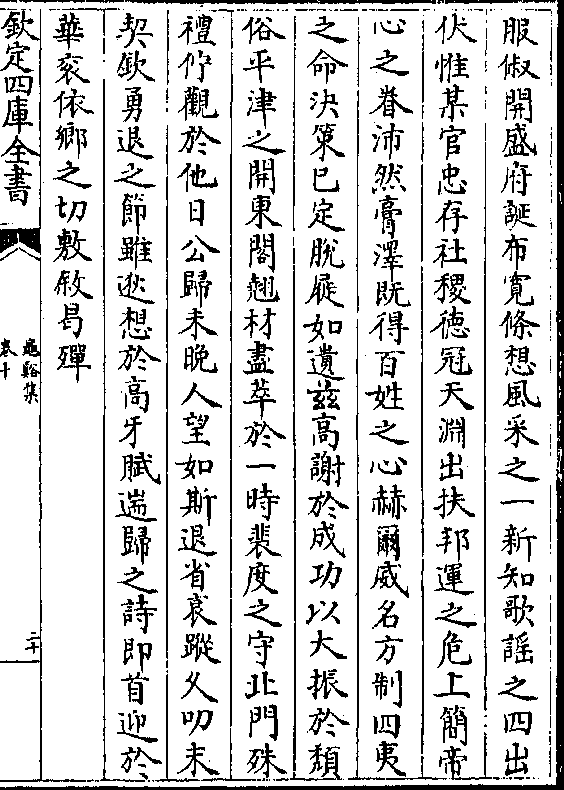 服俶開盛府誕布寛條想風采之一新知歌謡之四出
伏惟某官忠存社稷德冠天淵出扶邦運之危上簡帝
心之眷沛然膏澤既得百姓之心赫爾威名方制四夷
之命決策已定脫屣如遺茲高謝於成功以大振於頽
俗平津之開東閣翹材盡萃於一時裴度之守北門殊
禮佇觀於他日公歸未晩人望如斯退省衰蹤久叨末
契欽勇退之節雖逖想於高牙賦遄歸之詩即首迎於
華衮依鄉之切敷敘曷殫
欽定四庫全書
龜谿集
卷十
二十